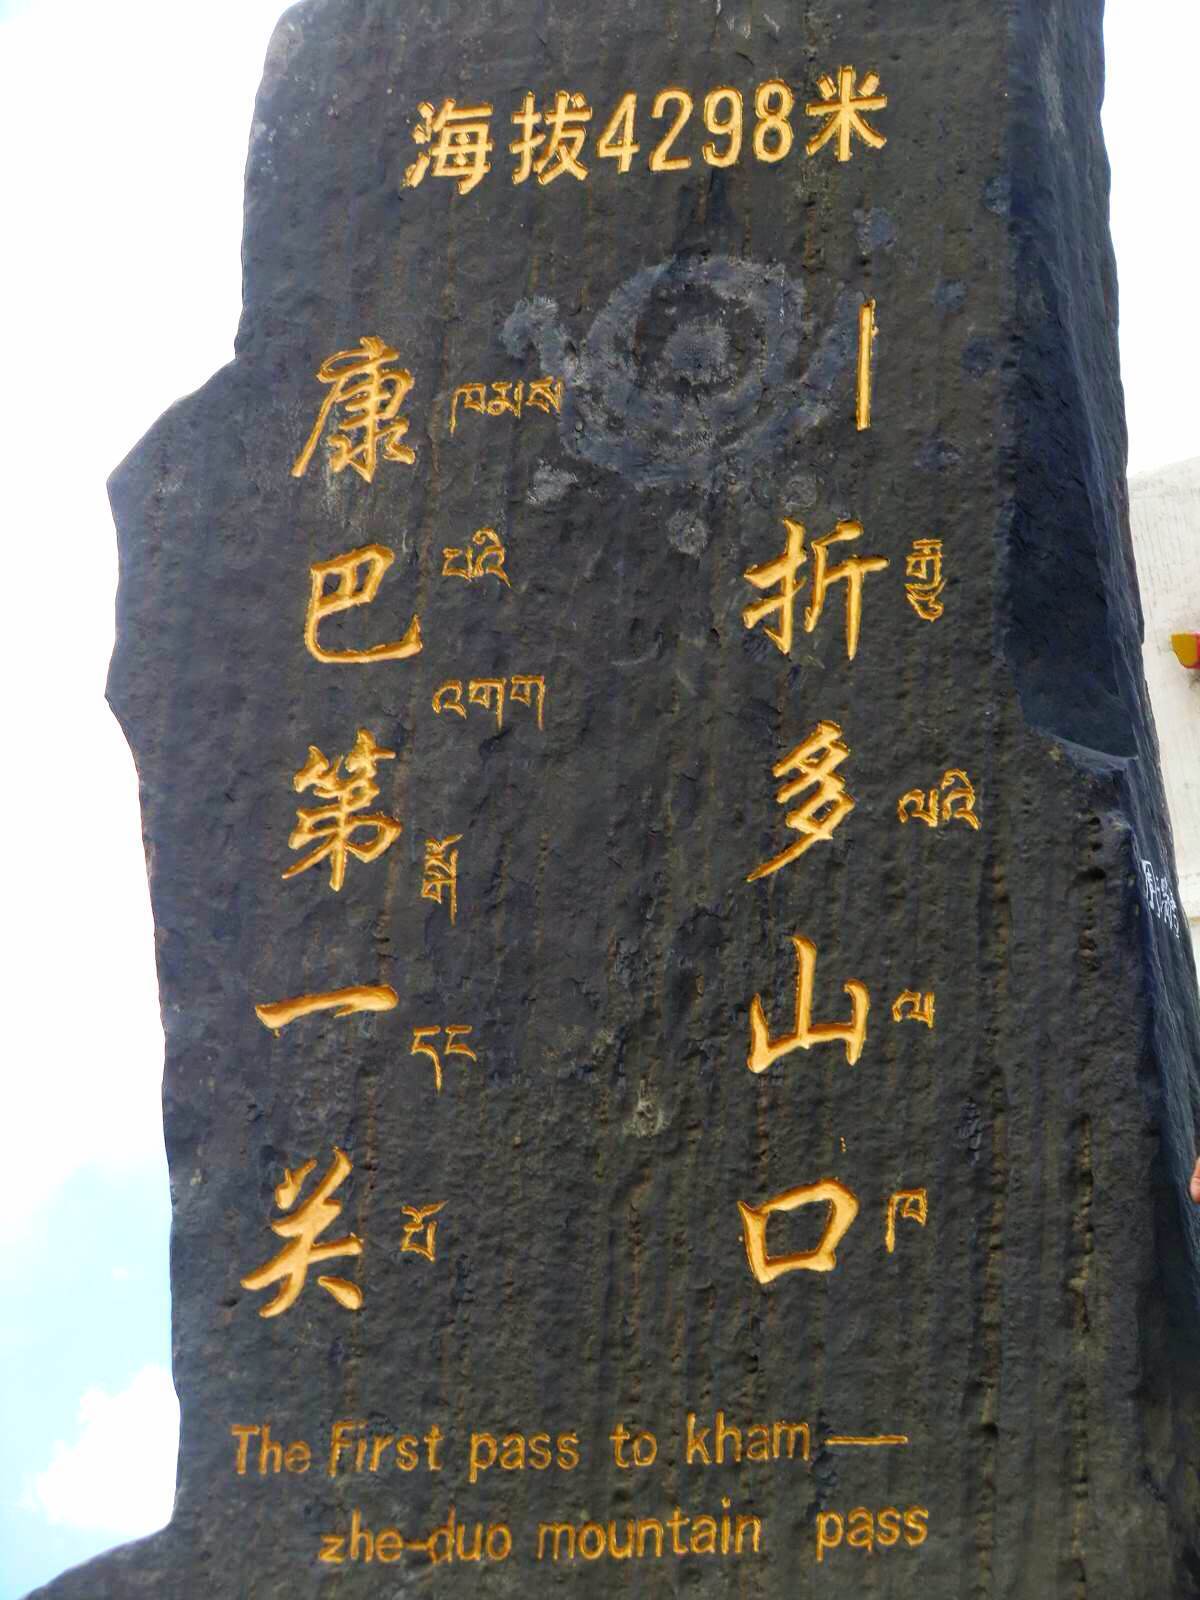 海拔4298米
康巴第一关
ཁམས་པའི་འགག་སྒོ་དང་པོ
—折多山口
རྒྱུད་ལའི་ལ་ཁ
The First pass to kham—
zhe-duo mountain pass